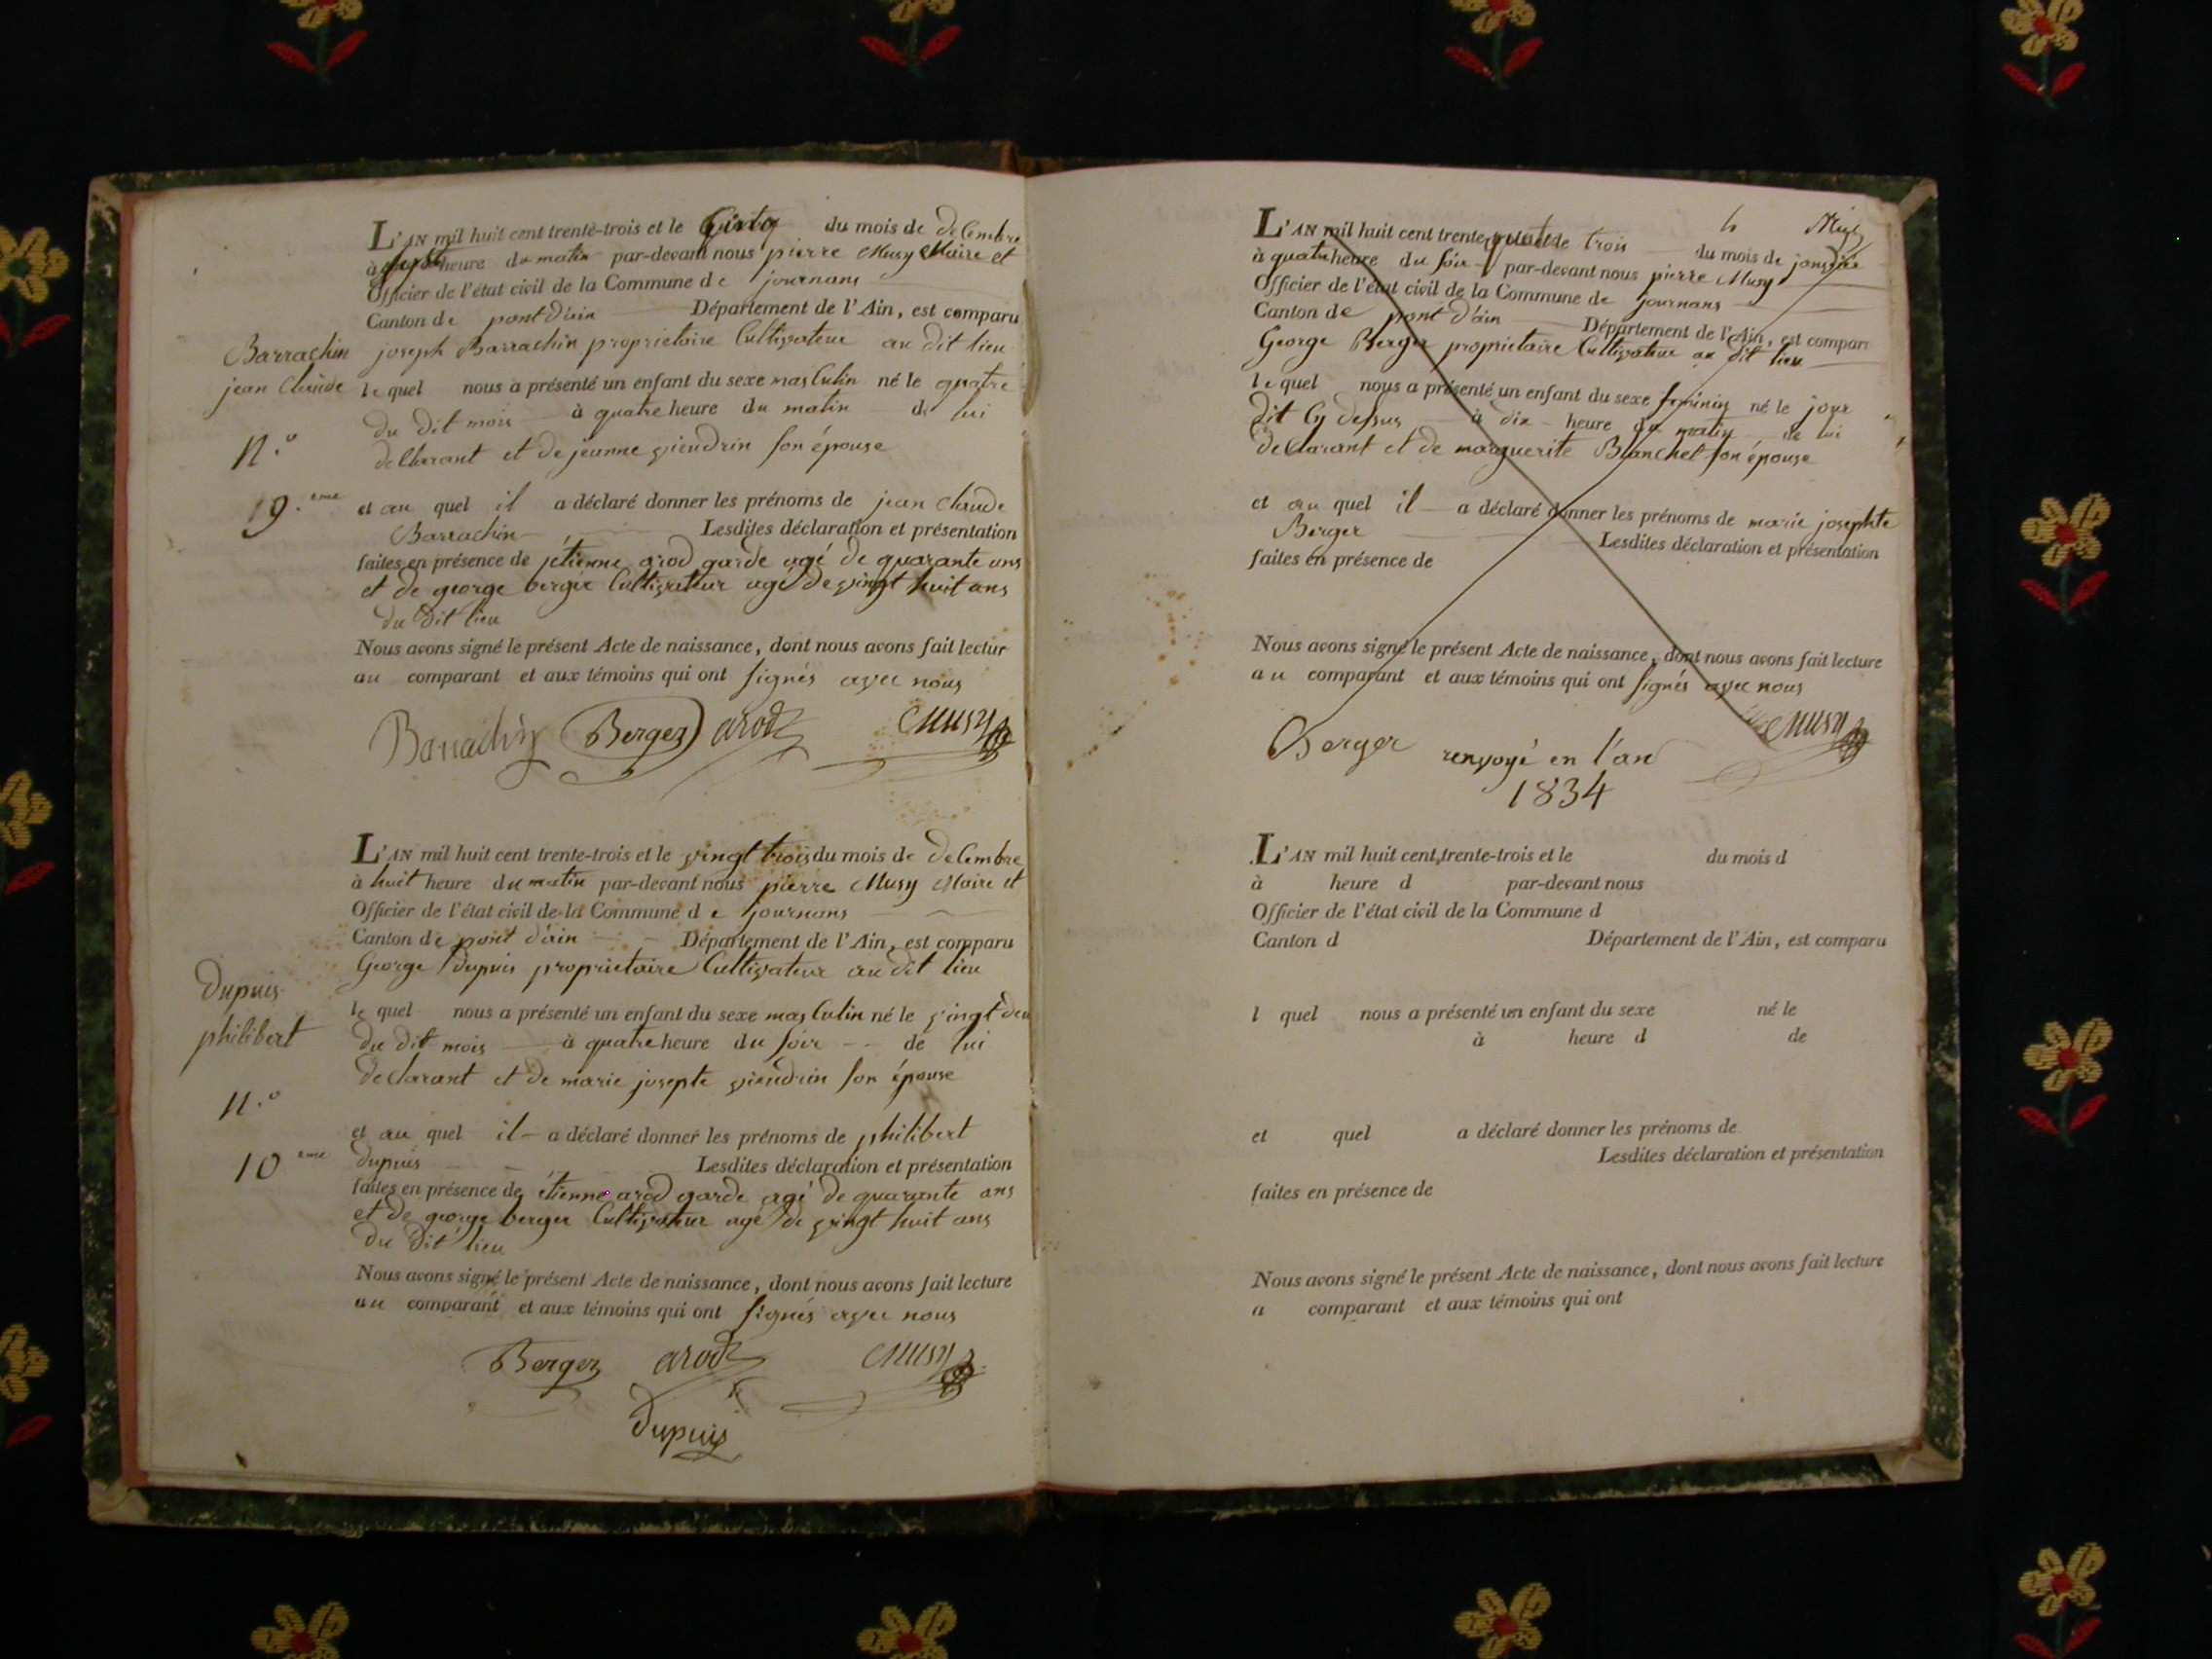 L'AN mil huit cent trente-trois et le Cinq du mois de decembre
à sept heure du matin par-devant nous pierre Musy Maire et
Officier de l'état civil de la Commune de journans
Canton de pont d'ain Département de l'Ain, est comparu
joseph Barrachin proprietaire Cultivateur au dit lieu
Barrachin
jean Claude
le quel nous a présenté un enfant du sexe masculin né le quatre
du dit mois à quatre heure du matin de lui
declarant et de jeanne viendrin son épouse
N.°
9.eme
et au quel il a déclaré donner les prénoms de jean Claude
Barrachin Lesdites déclaration et présentation
faites en présence de étienne arod garde agé de quarante ans
et de george berger Cultivateur agé de vingt huit ans
du dit lieu
Nous avons signé le présent Acte de naissance, dont nous avons fait lectur
au comparant et aux témoins qui ont signés avec nous
Barrachin Berger arod Musy
L'AN mil huit cent trente-trois et le vingt trois du mois de decembre
à huit heure du matin par-devant nous pierre Musy Maire et
Officier de l'état civil de la Commune de journans
Canton de pont d'ain Département de l'Ain, est comparu
George Dupuis proprietaire Cultivateur au dit lieu
Dupuis
philibert
le quel nous a présenté un enfant du sexe masculin né le vingt deu
du dit mois à quatre heure du soir de lui
declarant et de marie josepte viendrin son épouse
N.°
10 eme
et au quel il a déclaré donner les prénoms de philibert
dupuis Lesdites déclaration et présentation
faites en présence de étienne arod garde agé de quarante ans
et de george berger Cultivateur agé de vingt huit ans
du dit lieu
Nous avons signé le présent Acte de naissance, dont nous avons fait lecture
au comparant et aux témoins qui ont signés avec nous
Berger arod Musy
dupuis
L'AN mil huit cent trente quatre trois du mois de janvier
à quatre heure du soir par-devant nous pierre Musy
Officier de l'état civil de la Commune de journans
Canton de pont d'ain Département de l'Ain, est compar
George Berger proprietaire Cultivateur au dit lieu
le quel nous a présenté un enfant du sexe feminin né le jour
dit cy dessus à dix heure du matin de lui
declarant et de marguerite Blanchet son épouse
et au quel il a déclaré donner les prénoms de marie josephte
Berger Lesdites déclaration et présentation
faites en présence de
Nous avons signé le présent Acte de naissance, dont nous avons fait lecture
au comparant et aux témoins qui ont signés avec nous
Berger renvoyé en l'an Musy
1834
L'AN mil huit cent trente-trois et le du mois d
à heure d par-devant nous
Officier de l'état civil de la Commune d
Canton d Département de l'Ain, est comparu
l quel nous a présenté un enfant du sexe né le
à heure d de
et quel a déclaré donner les prénoms de
Lesdites déclaration et présentation
faites en présence de
Nous avons signé le présent Acte de naissance, dont nous avons fait lecture
a comparant et aux témoins qui ont